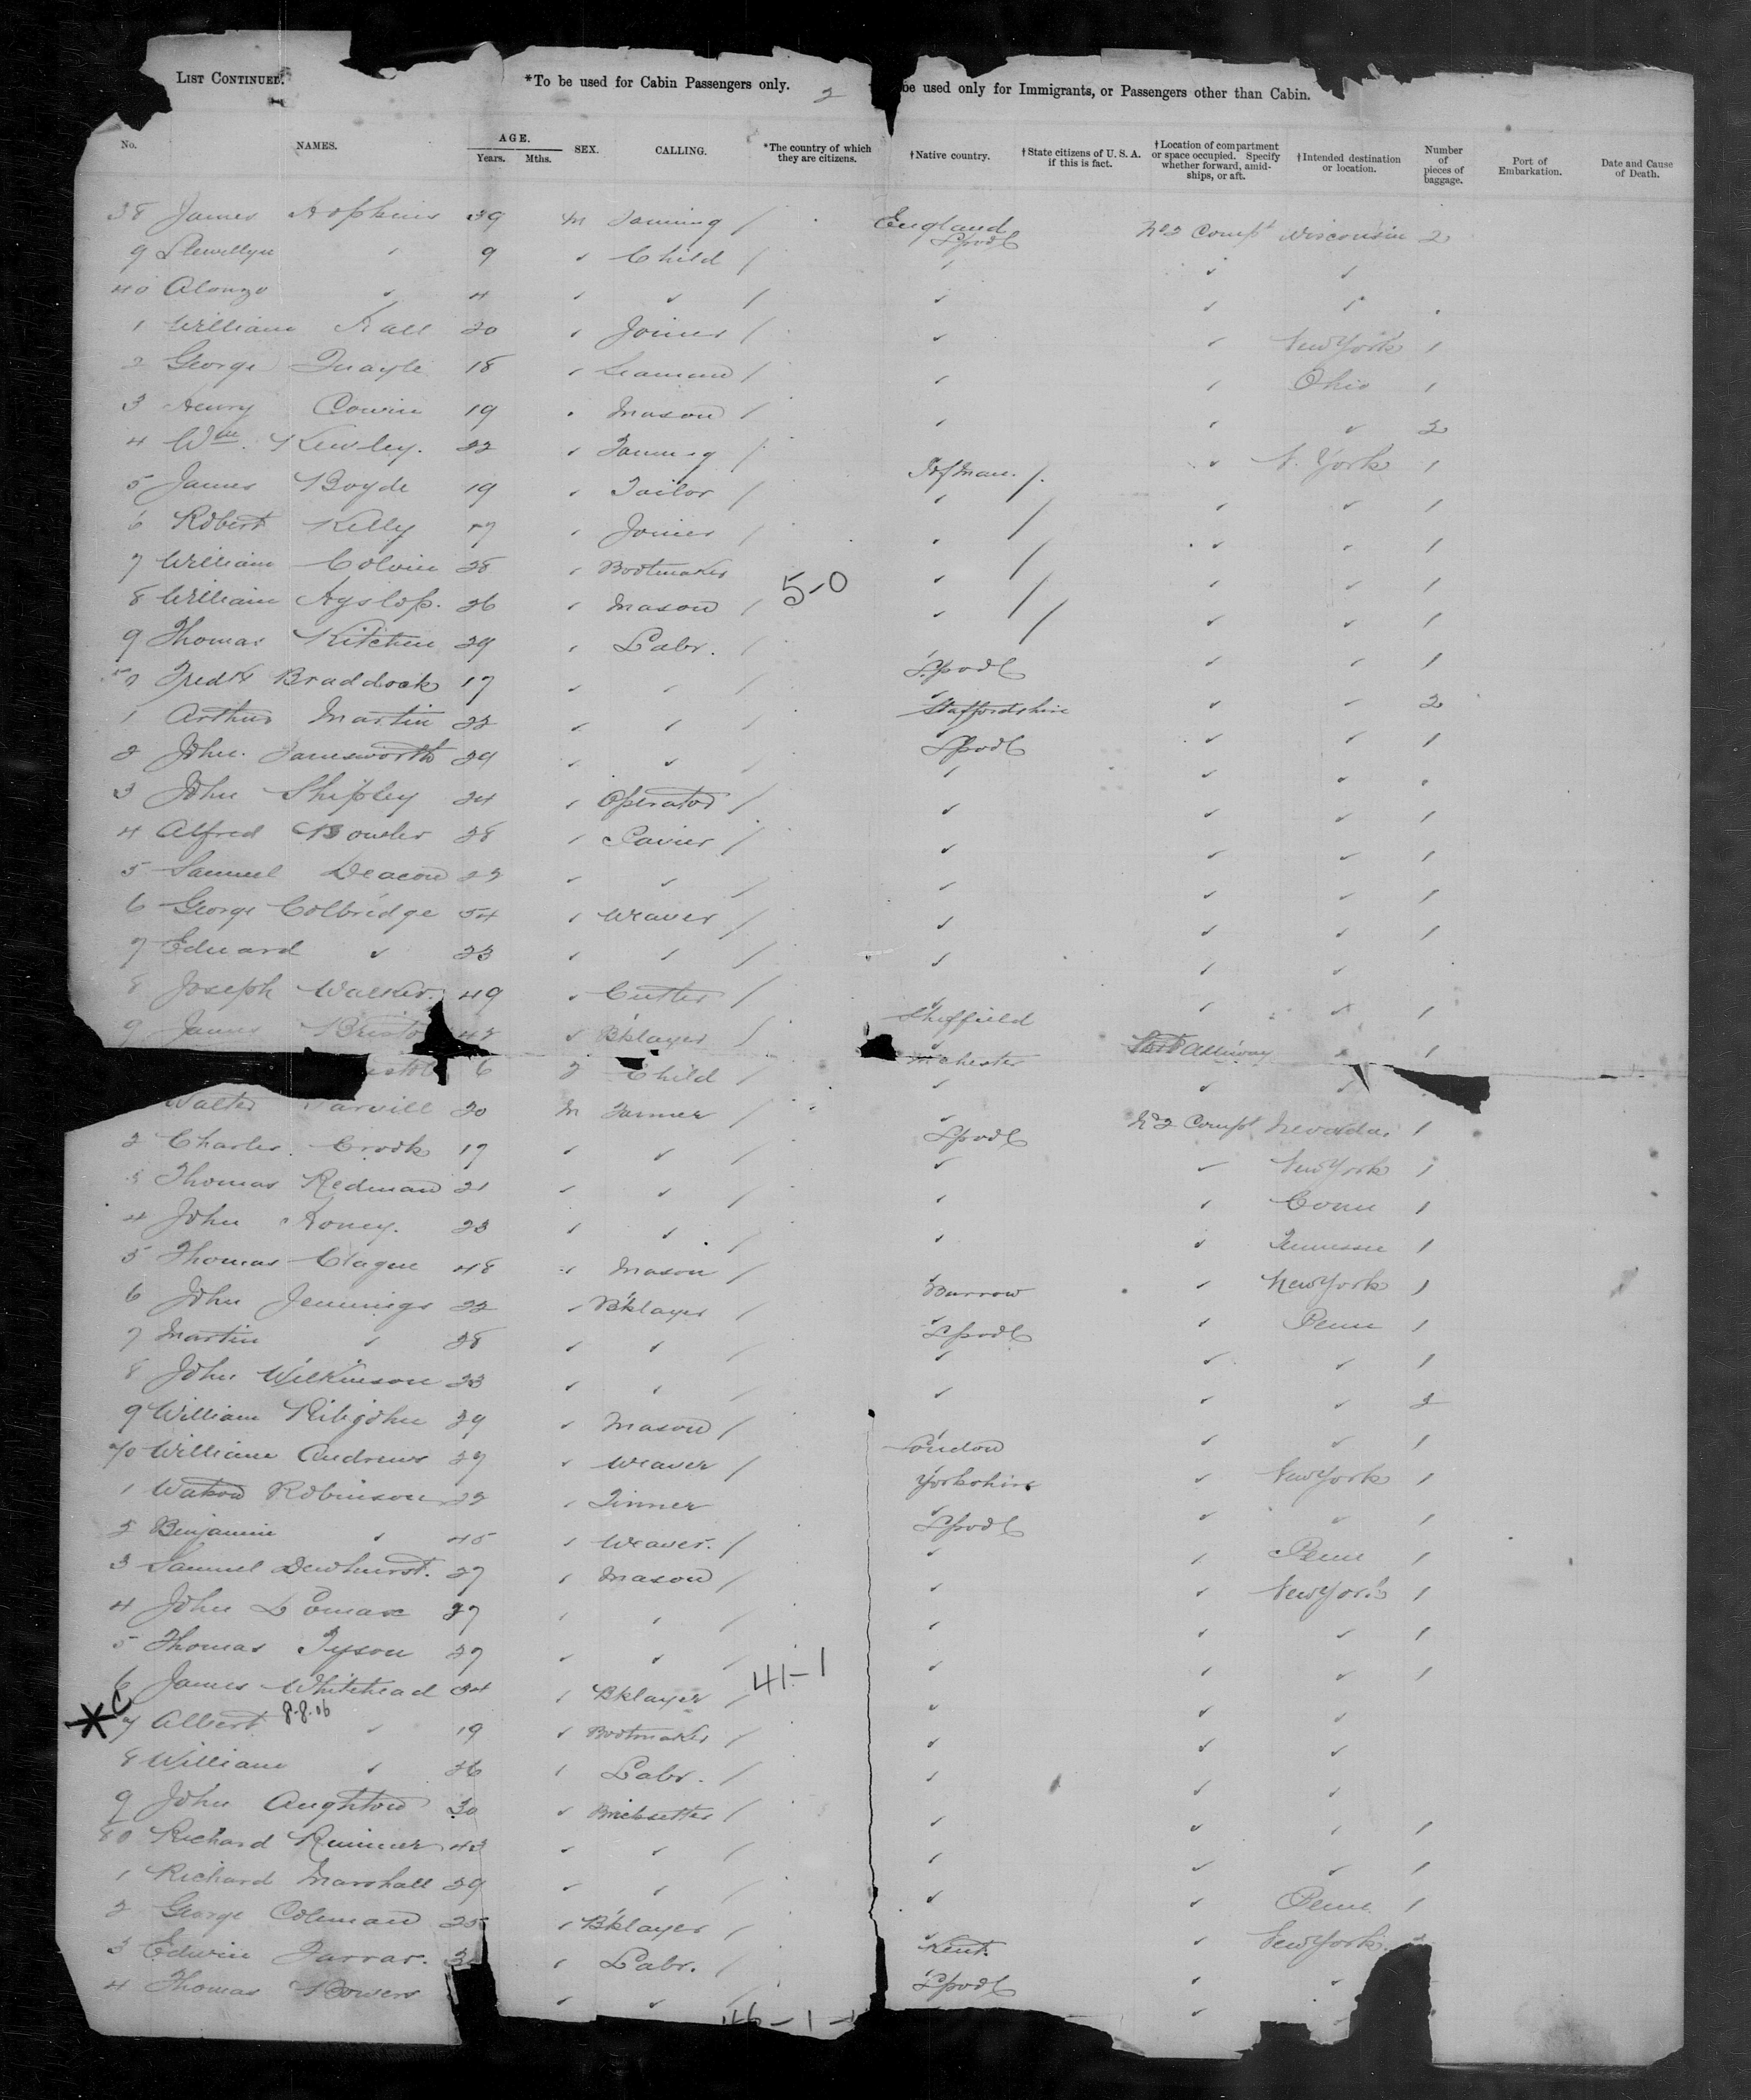 LIST CONTINUED. *To be used for Cabin Passengers only. 2 be used only for Immigrants, or Passengers other than Cabin.
No. NAMES. AGE. Years. Mths. SEX. CALLING. *The country of which they are citizens. †Native country. †State citizens of U. S. A. if this is fact. †Location of compartment or space occupied. Specify whether forward, amid-ships, or aft. †Intended destination or location. Number of pieces of baggage. Port of Embarkation. Date and Cause of Death.
38 James Hopkins 39 M / England L'pool No 2 Comp't Wisconsin 2
9 Llewellyn " 9 " Child / " " "
40 Alonzo " 4 " " / " " "
1 William 20 " Joiner / " " New York 1
2 George Quayle 18 " Seaman / " " Ohio 1
3 Henry Cowin 19 " Mason / " " " 2
4 Wm. Kewley. 22 " / I of Man. / " N. York 1
5 James Boyde 19 " Tailor / " / " " 1
6 Robert Kelly " Joiner / " / " " 1
7 William Colvin 28 " Bootmaker " / " " 1
8 William Hyslop. 26 " Mason / 5-0 " / " " 1
9 Thomas Kitchen 29 " Labr. / L'pool " " 1
50 Fredk Braddock 17 " " / Staffordshire " " 2
1 Arthur Martin 22 " " / L'pool " " 1
2 John. 29 " " / " " " "
3 John Shipley 24 " Operator / " " " 1
4 Alfred Bowler 28 " Pavier / " " " 1
5 Samuel Deacon 22 " " / " " " 1
6 George Colbridge 54 " Weaver / " " " 1
7 Edward " 23 " " / " " "
8 Joseph Walker. 49 " Cutler / Sheffield " " 1
9 James Bristo 42 " B'klayer / chester " 1
istol 6 f Child / " " "
Walter 20 M Farmer / L'pool No 2 Comp't Nevada 1
2 Charles Crook 17 " " / " " New York 1
3 Thomas Redman 21 " " / " " Conn 1
4 John 23 " " / " " Tennessee 1
5 Thomas Clague 48 " Mason / Barrow " New York 1
6 John Jennings 22 " B'klayer / L'pool " Penn 1
7 Martin " 28 " " / " " " 1
8 John Wilkinson 23 " " / " " " 2
9 William 29 " Mason / London " " 1
70 William Andrews 27 " Weaver / Yorkshire " New York 1
1 Watson Robinson 22 " Tinner L'pool " " 1
2 Benjamin " 45 " Weaver. / " " Penn 1
3 Samuel Dewhurst. 27 " Mason / " " New York 1
4 John Lomax 27 " " / " " " 1
5 Thomas Tyson 27 " " / " " " 1
6 James Whitehead 34 " B'klayer / 41-1 " " "
*C 7 Albert 8-8-06 " 19 " Bootmaker / " " "
8 William " 26 " Labr. / " " "
9 John Aughton 30 " Bricksetter / " " " 1
80 Richard Rimmer 43 " " / " " " 1
1 Richard Marshall 29 " " / " " Penn 1
2 George Coleman 25 " B'klayer / Kent. " New York
3 Edwin Farrar. 3 " Labr. / L'pool " "
4 Thomas Bowers " " / "
46-1-